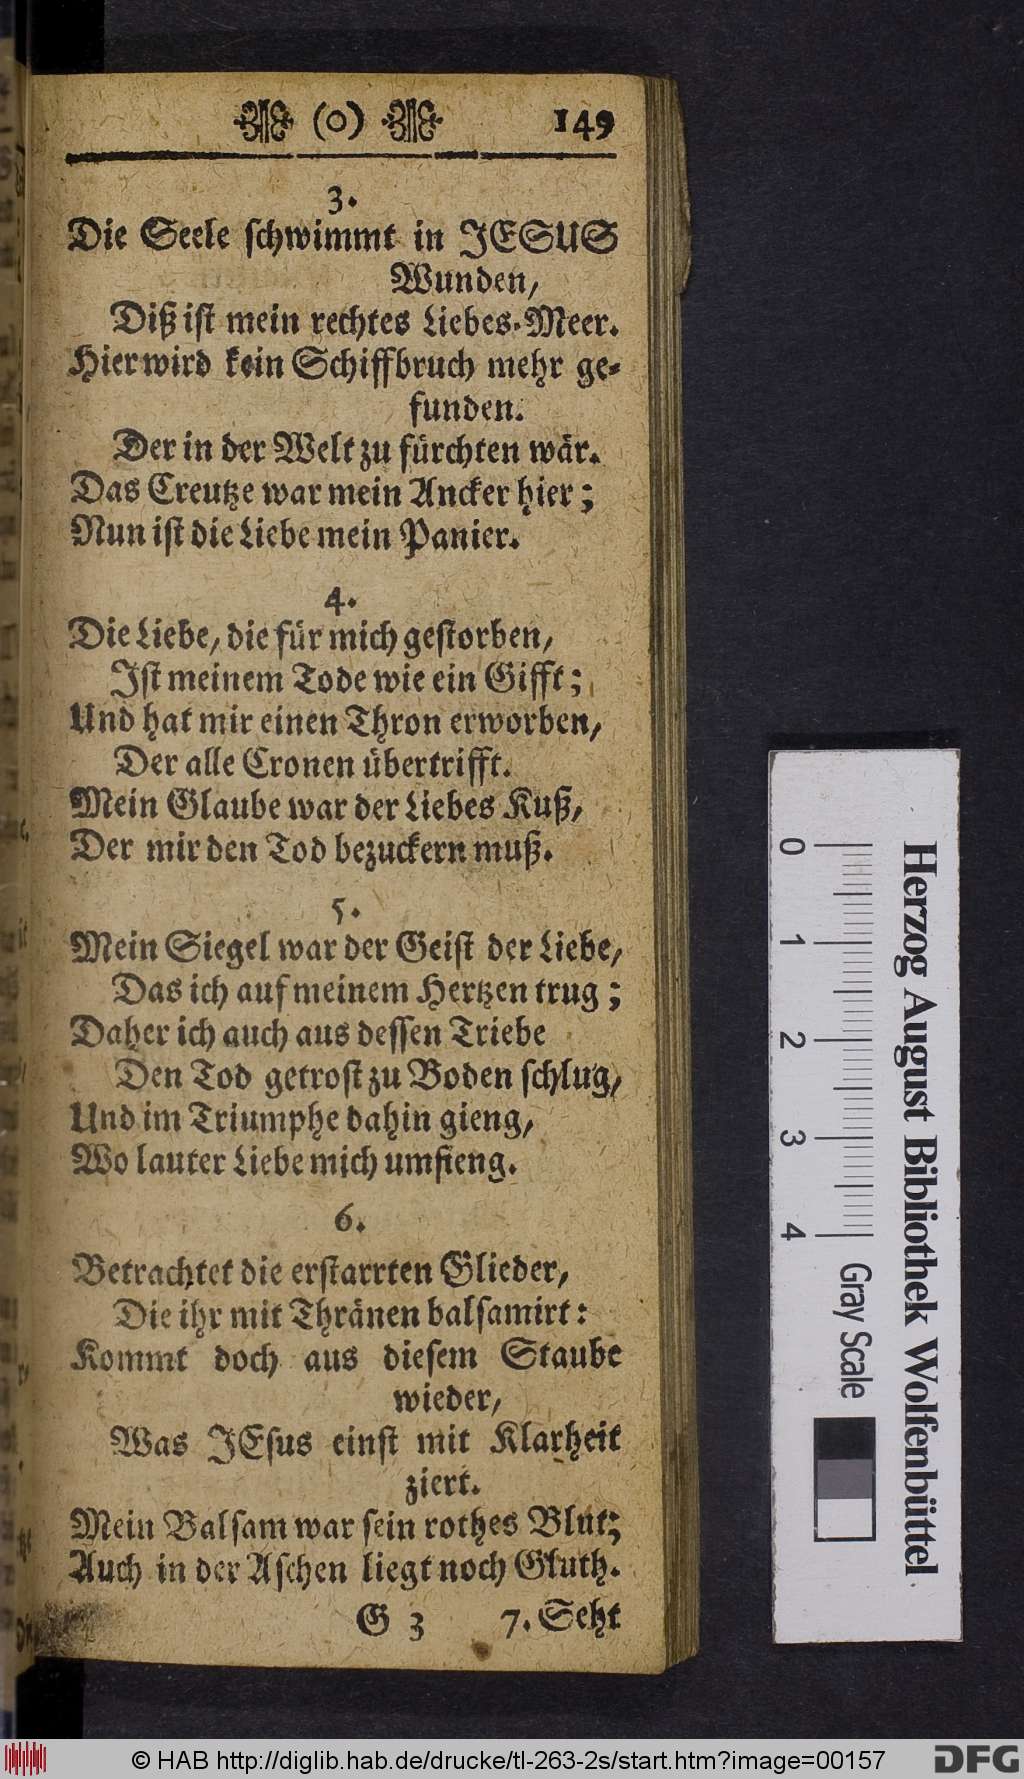 (o) 149
3.
Die Seele ſchwimmt in JESUS
Wunden,
Diß iſt mein rechtes Liebes-Meer.
Hier wird kein Schiffbruch mehr ge-
funden.
Der in der Welt zu fürchten wär.
Das Creutze war mein Ancker hier;
Nun iſt die Liebe mein Panier.
4.
Die Liebe, die für mich geſtorben,
Iſt meinem Tode wie ein Gifft;
Und hat mir einen Thron erworben,
Der alle Cronen übertrifft.
Mein Glaube war der Liebes Kuß,
Der mir den Tod bezuckern muß.
5.
Mein Siegel war der Geiſt der Liebe,
Das ich auf meinem Hertzen trug;
Daher ich auch aus deſſen Triebe
Den Tod getroſt zu Boden ſchlug,
Und im Triumphe dahin gieng,
Wo lauter Liebe mich umfieng.
6.
Betrachtet die erſtarrten Glieder,
Die ihr mit Thränen balſamirt:
Kommt doch aus dieſem Staube
wieder,
Was JEſus einſt mit Klarheit
ziert.
Mein Balſam war ſein rothes Blut;
Auch in der Aſchen liegt noch Gluth.
G 3 7. Seht
0 1 2 3 4
Gray Scale
Herzog August Bibliothek Wolfenbüttel
© HAB http://diglib.hab.de/drucke/tl-263-2s/start.htm?image=00157
DFG